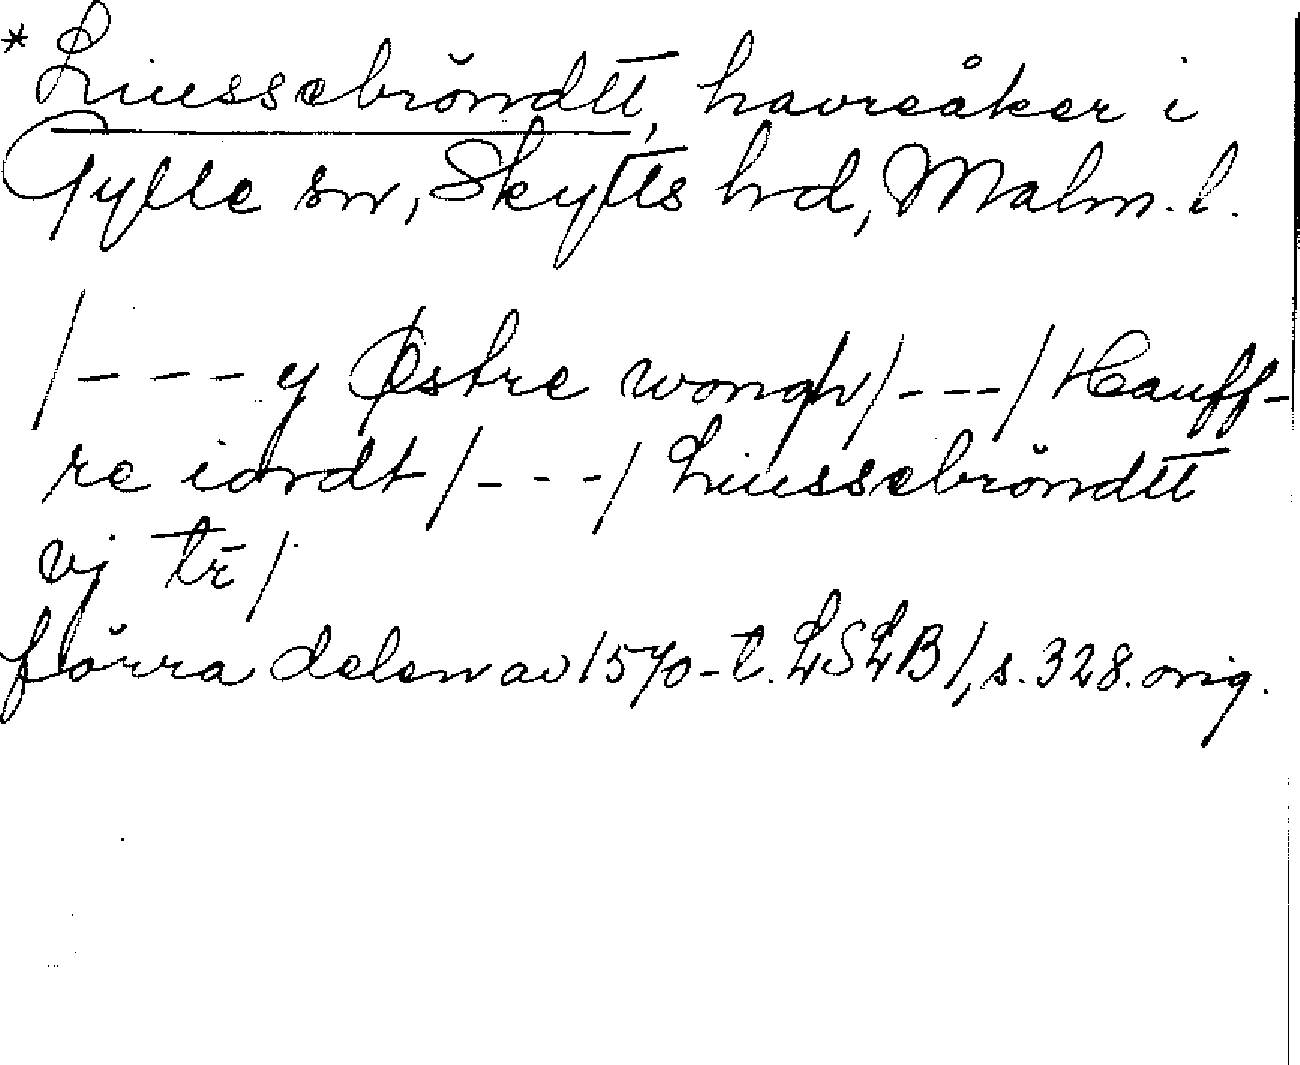 * Liussebröndtt, havreåker i
Gylle sn, Skytts hd, Malm. l.
/- - - y Østre wongh/- - -/ Hauff-
re iordt/- - -/ Liussebröndtt
vj tr̄/
förra delen av 1570-t. LSLB1, s. 328. orig.